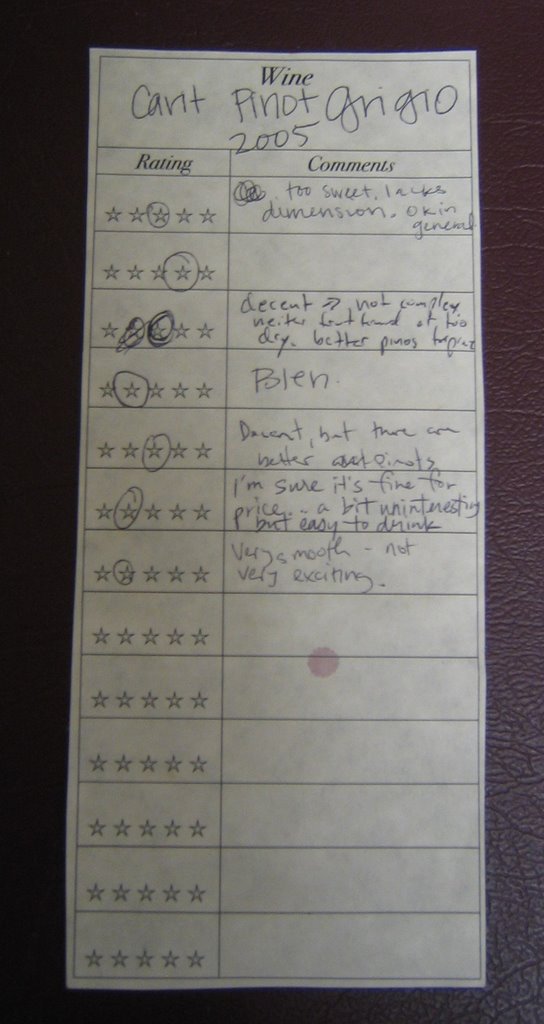 Wine
Cavit Pinot Grigio
2005
Rating Comments
too sweet, lacks
dimension. ok in
general
decent → not complex
neither fruit hand or too
dry. better pinos
Bleh.
Decent, but there are
better pinots
I'm sure it's fine for
price... a bit uninteresting
but easy to drink
Very smooth - not
very exciting.